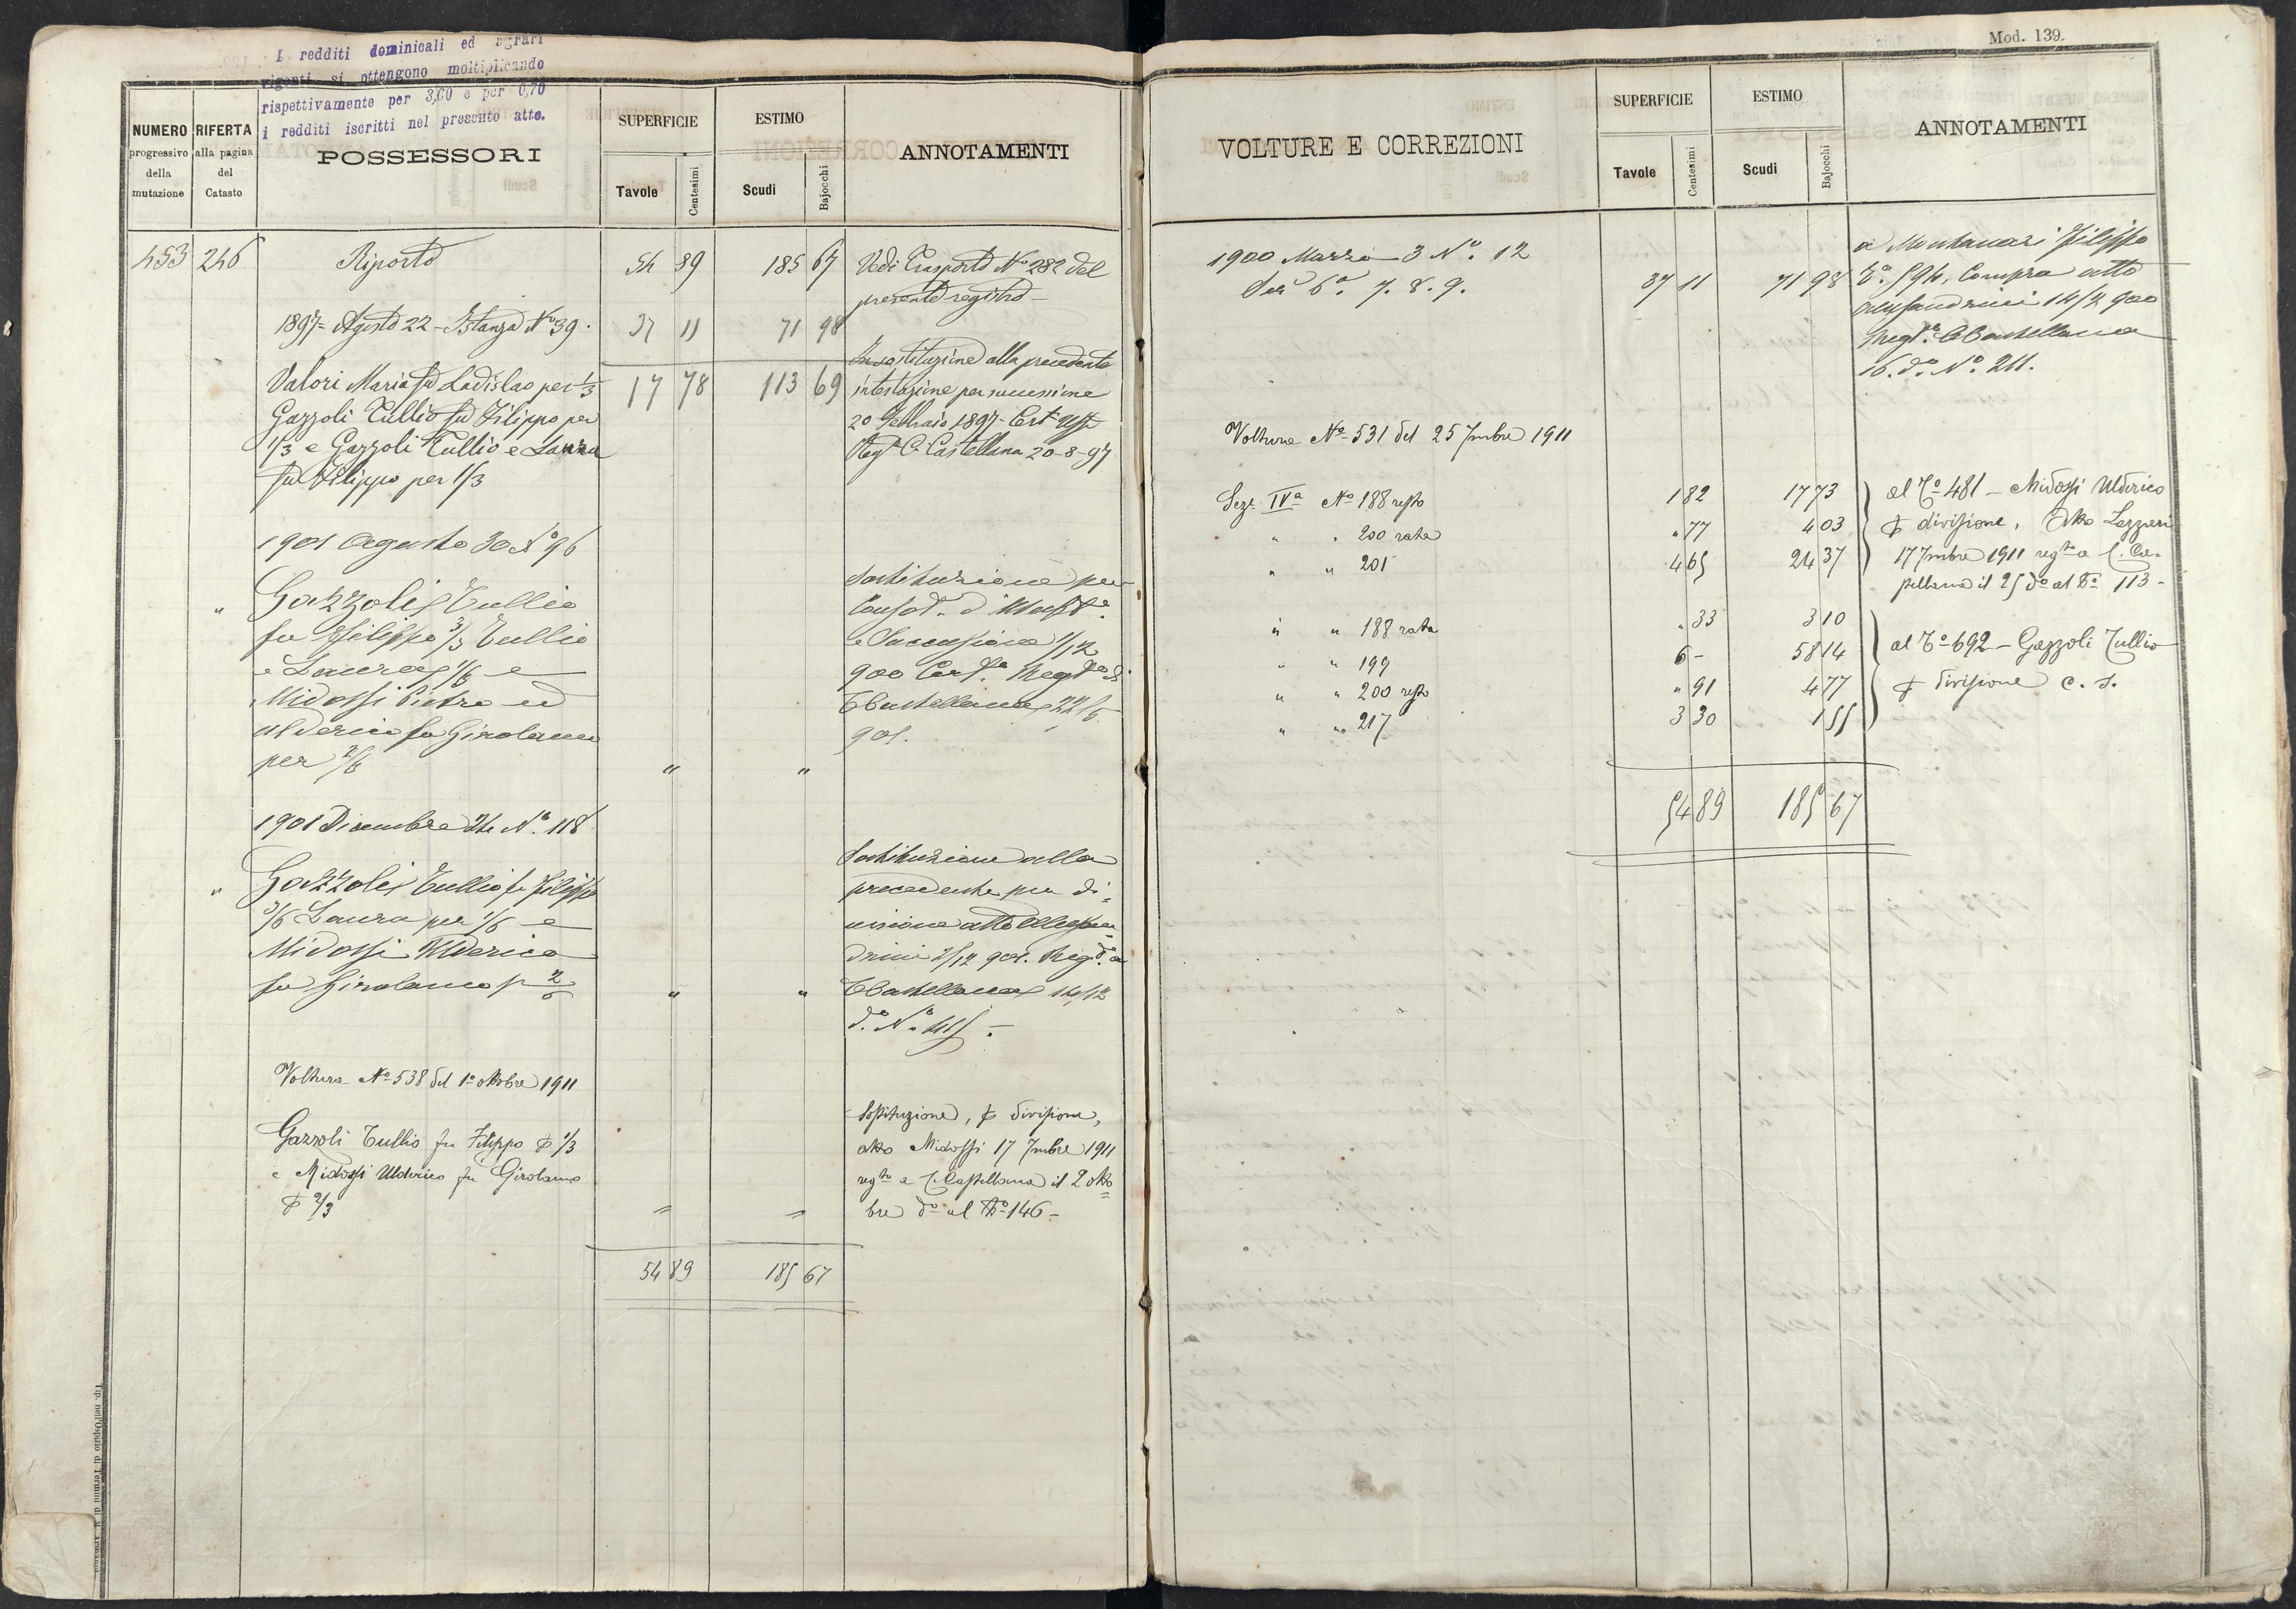 I redditi dominicali ed agrari
vigenti si ottengono moltiplicando
rispettivamente per 3,60 e per 0,70
i redditi iscritti nel presente atto.
NUMERO progressivo della mutazione
RIFERTA alla pagina del Catasto
POSSESSORI
SUPERFICIE
Tavole
Centesimi
ESTIMO
Scudi
Bajocchi
ANNOTAMENTI
453 246 Riporto 54 89 185 67 Vedi Trasporto N° 282 del
presente registro
1897 = Agosto 22 - Istanza N° 39. 37 11 71 98
In sostituzione alla precedente
Valori Maria fu Ladislao per 1/3 17 78 113 69 intestazione per successione
Gazzoli Tullio fu Filippo per 20 Febbraio 1897 -
1/3 e Gazzoli Tullio e Laura Reg° C. Castellana 20-8-97
fu Filippo per 1/3
1901 Agosto 30 N° 96
Gazzoli Tullio Sostituzione per
fu Filippo 3/3 Tullio
e Laura 1/6 e e Successione 1/12
Midossi Pietro ed 900
Ulderico fu Girolamo C Castellana 22/6
per 2/6 " " 901.
1901 Dicembre 24 N° 118
Sostituzione alla
" Gazzoli Tullio fu Filippo precedente per di=
3/6 Laura per 1/6 e visione atto Alessan=
Midossi Ulderico drini 1/12 901. Reg° a
fu Girolamo p 2/6 " " C Castellana 14/12
d° N° 415 -
Voltura N° 538 del 1° ottobre 1911
Sostituzione, p divisione,
Gazzoli Tullio fu Filippo p 1/3 atto Midossi 17 7mbre 1911
e Midossi Ulderico fu Girolamo regto a C. Castellana il 2 otto=
p 2/3 " " bre d° al N° 146 -
54 89 185 67
Tip. nell'Ospizio di Termini di
Mod. 139.
VOLTURE E CORREZIONI
SUPERFICIE
Tavole
Centesimi
ESTIMO
Scudi
Bajocchi
ANNOTAMENTI
1900 Marzo 3 N°. 12 a Montanari Filippo
Sez 6ª. 7. 8. 9. 37 11 71 98 T°. 594, Compra atto
Alessandrini 14/2 900
Reg° C Castellana
16. d° N° 211.
Voltura N° 531 del 25 7mbre 1911
Sez. IVª N° 188 resto 1 82 17 73 al T° 481 - Midossi Ulderico
" " 200 rata " 77 4 03 p divisione, atto Lazzari
" " 201 4 65 24 37 17 7mbre 1911 regto a C. Ca=
stellana il 25 d° al N° 113 -
" " 188 rata " 33 3 10
" " 199 6 - 58 14 al T° 692 - Gazzoli Tullio
" " 200 resto " 91 4 77 p divisione c. s.
" " 217 3 30 1 55
54 89 185 67